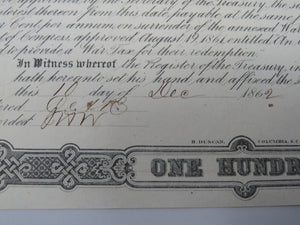 by the Secretary of the Treasury, the su
thereof from this date payable at the same
Cent per annum on surrender of the annexed War
of Congress approved August 19 1861
to provide a War Tax for their redemption
In Witness whereof the Register of the Treasury, in
hath hereunto set his hand, and affixed the
this 10 day of Dec 1862
B. DUNCAN, COLUMBIA, S.C.
ONE HUNDR